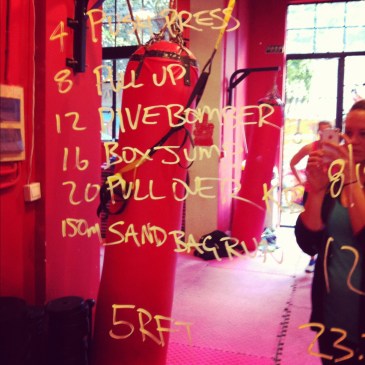 4 PUSH PRESS
8 PULL UP
12 DIVEBOMBER
16 BOX JUMP
20 PULL OVER
150m SANDBAG RUN
5RFT
8/1
12
23: